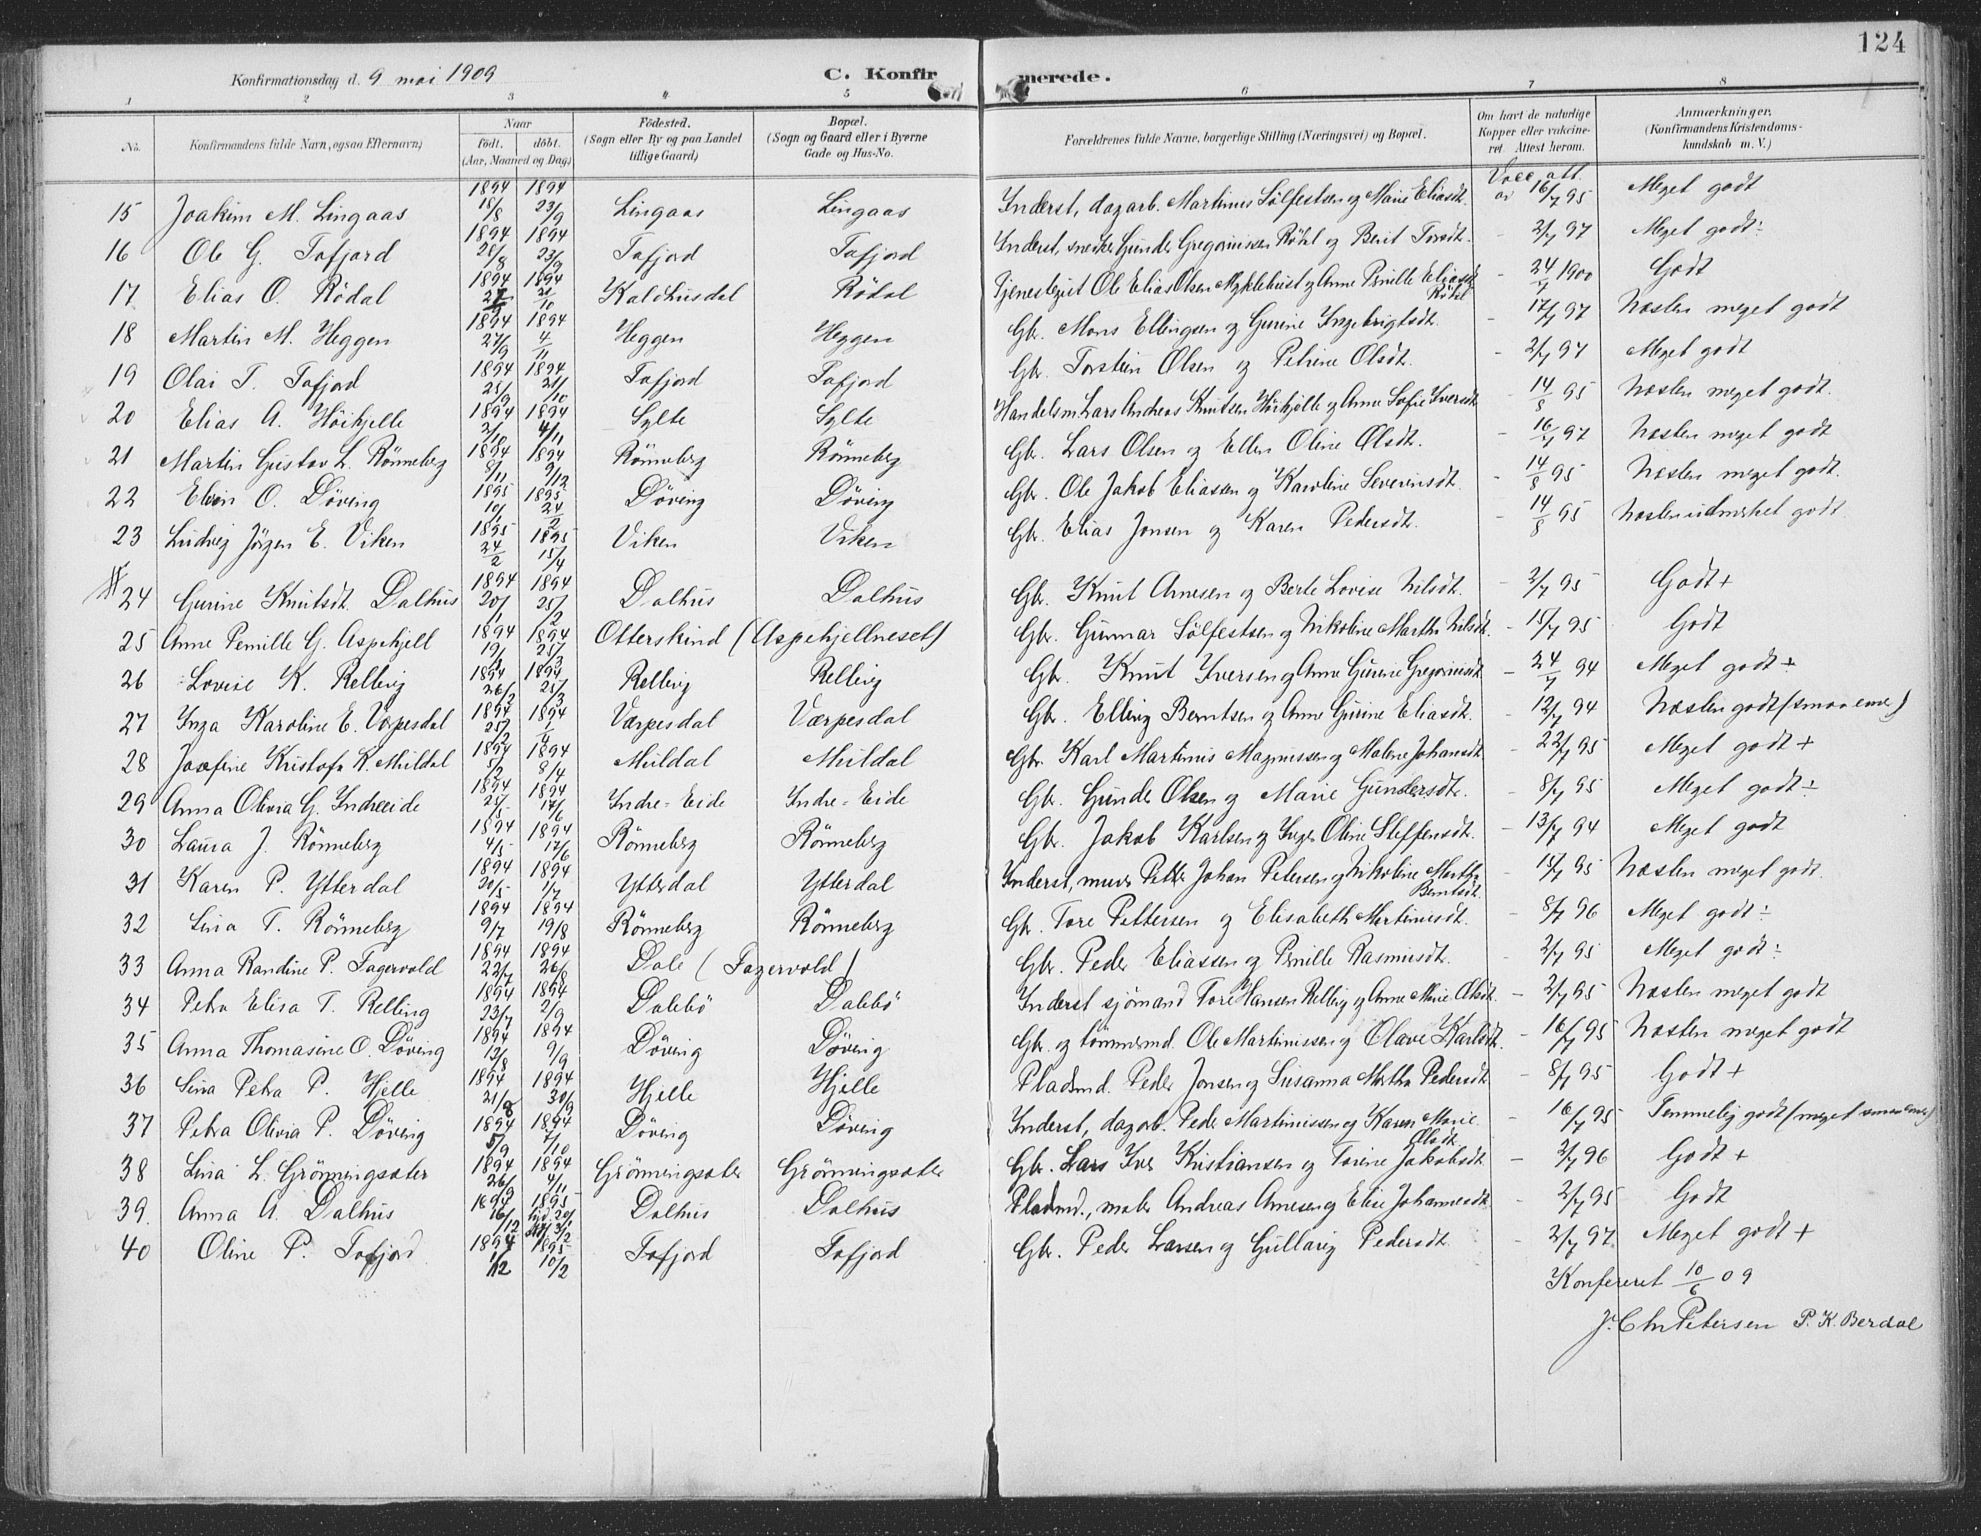 124
Konfirmationsdag d. 9 mai 1909
C. Konfir merede.
1 2 3 4 5 6 7 8
No. Konfirmandens fulde Navn, ogsaa Efternavn) Naar födt. döbt. (Aar, Maaned og Dag) Födested. (Sogn eller By og paa Landet tillige Gaard) Bopæl. (Sogn og Gaard eller i Byerne Gade og Hus-No. Forældrenes fulde Navne, borgerlige Stilling (Næringsvei) og Bopæl. Om havt de naturlige Kopper eller vakcineret. Attest herom. Anmærkninger. (Konfirmandens Kristendomskundskab m. V.)
15 Joakim M. Lingaas 1894 18/8 1894 23/9 Lingaas Lingaas Inderst, dagarb. Martinus Sølfestsen og Marie Eliasdt. Vacc. att. av 16/7 95 Meget godt
16 Ole G. Tafjord 1894 28/8 1894 23/9 Tafjord Tafjord Inderst, snedker Gunder Gregoriussen Rødal og Berit Torsdt. - 2/7 97 Meget godt ÷
17 Elias O. Rödal 1894 1894 21/10 Kaldhusdal Rödal Tjenestegut Ole Elias Olsen Myklebust og Anne Pernille Eliasdt. Rödal - 24/7 1900 Godt
18 Martin M. Heggen 1894 27/9 1894 4/11 Heggen Heggen Gbr. Mons Ellingsen og Gurine Ingebrigtsdt. - 17/7 97 Næsten meget godt
19 Olai T. Tafjord 1894 25/9 1894 21/10 Tafjord Tafjord Gbr. Torstein Olsen og Petrine Olsdt. - 2/7 97 Meget godt
20 Elias A. Höikjelle 1894 2/10 1894 4/11 Sylte Sylte Handelsm. Lars Andreas Knutsen Höikjelle og Anne Sofie Iversdt. - 14/8 95 Næsten meget godt.
21 Martin Gustav L. Rönneberg 1894 8/11 1894 9/12 Rönneberg Rönneberg Gbr. Lars Olsen og Ellen Oline Olsdt. - 16/7 97 Næsten meget godt
22 Elvin O. Döving 1895 10/1 1895 24/2 Döving Döving Gbr. Ole Jakob Eliassen og Karoline Severinsdt. - 14/8 95 Næsten meget godt.
23 Ludvig Jörgen E. Viken 1895 24/2 1895 15/4 Viken Viken Gbr. Elias Jonsen og Karen Pedersdt. - 14/8 95 Næsten udmerket godt
24 Gurine Knutsdt. Dalhus 1894 20/1 1894 25/2 Dalhus Dalhus Gbr. Knut Arnesen og Berte Lovise Nilsdt. - 2/7 95 Godt +
25 Anne Pernille G. Aspehjell 1894 1894 25/3 Otterskind (Aspehjellneset) Gbr. Gunnar Sølfestsen og Nikoline Martha Nilsdt. - 15/7 95 Godt
26 Lovise K. Relling 1894 26/2 1894 25/3 Relling Relling Gbr. Knut Iversen og Anne Gurine Gregoriusdt. - 24/7 94 Meget godt ÷
27 Inga Karoline E. Værpesdal 1894 25/2 1894 1/4 Værpesdal Værpesdal Gbr. Elling Berntsen og Anne Gurine Eliasdt. - 12/7 94 Næsten godt (smaa evner)
28 Josefine Kristofa K. Muldal 1894 5/2 1894 8/4 Muldal Muldal Gbr. Karl Martinus Magnussen og Malene Johansdt. - 22/7 95 Meget godt +
29 Anna Olivia G. Indreeide 1894 25/5 1894 17/6 Indre-Eide Indre-Eide Gbr. Gunder Olsen og Marie Gundersdt. - 8/7 95 Meget godt ÷
30 Laura J. Rönneberg 1894 4/5 1894 17/6 Rönneberg Rönneberg Gbr. Jakob Karlsen og Inger Oline Steffensdt. - 13/7 94 Meget godt
31 Karen P. Ytterdal 1894 20/5 1894 1/7 Ytterdal Ytterdal Inderst, murer Petter Johan Petersen og Nikoline Martha Berntsdt. - 15/7 95 Næsten meget godt.
32 Lina T. Rönneberg 1894 9/7 1894 19/8 Rönneberg Rönneberg Gb. Tore Pettersen og Elisabeth Martinusdt. - 8/7 96 Meget godt ÷
33 Anna Randine P. Fagervold 1894 22/7 1894 26/8 Dale (Fagervold) Gbr. Peder Eliassen og Pernille Rasmusdt. - 2/7 95 Meget godt ÷
34 Petra Elisa T. Relling 1894 23/7 1894 2/9 Dalebö Dalebö Inderst sjömand Tore Hansen Relling og Anne Marie Olsdt. - 2/7 95 Næsten meget godt
35 Anna Thomasine O. Döving 1894 12/8 1894 9/9 Döving Döving Gbr. og tömmermd. Ole Martinussen og Olave Karlsdt. - 16/7 95 Næsten meget godt
36 Lina Petra P. Hjelle 1894 21/8 1894 30/9 Hjelle Hjelle Pladsmd. Peder Jonsen og Susanna Martha Pedersdt. - 8/7 95 Godt +
37 Petra Olivia P. Döving 1894 5/9 1894 7/10 Döving Döving Inderst, dagarb. Peder Martinussen og Karen Marie Olsdt. - 16/7 95 Temmelig godt (meget smaa evner)
38 Lina L. Grönningsæter 1894 26/9 1894 4/11 Grönningsæter Grönningsæter Gbr. Lars Iver Kristiansen og Torine Jakobsdt. - 2/7 96 Godt +
39. Anna A. Dalhus 1894 16/12 1895 hjd. 20/1 Dalhus Dalhus Pladsmd., maler Andreas Arnesen og Elise Johannesdt. - 2/7 95 Godt
40 Oline P. Tafjord 1894 1895 10/2 Tafjord Tafjord Gbr. Peder Larsen og Gullaug Pedersdt. - 2/7 97 Meget godt +
Konfereret 10/6 09
J. Chr Petersen P. K. Berdal